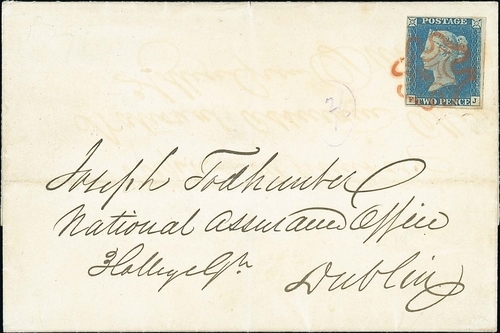 POSTAGE
TWO PENCE
Joseph Todhunter
National Assurance Office
3 College Gn Dublin